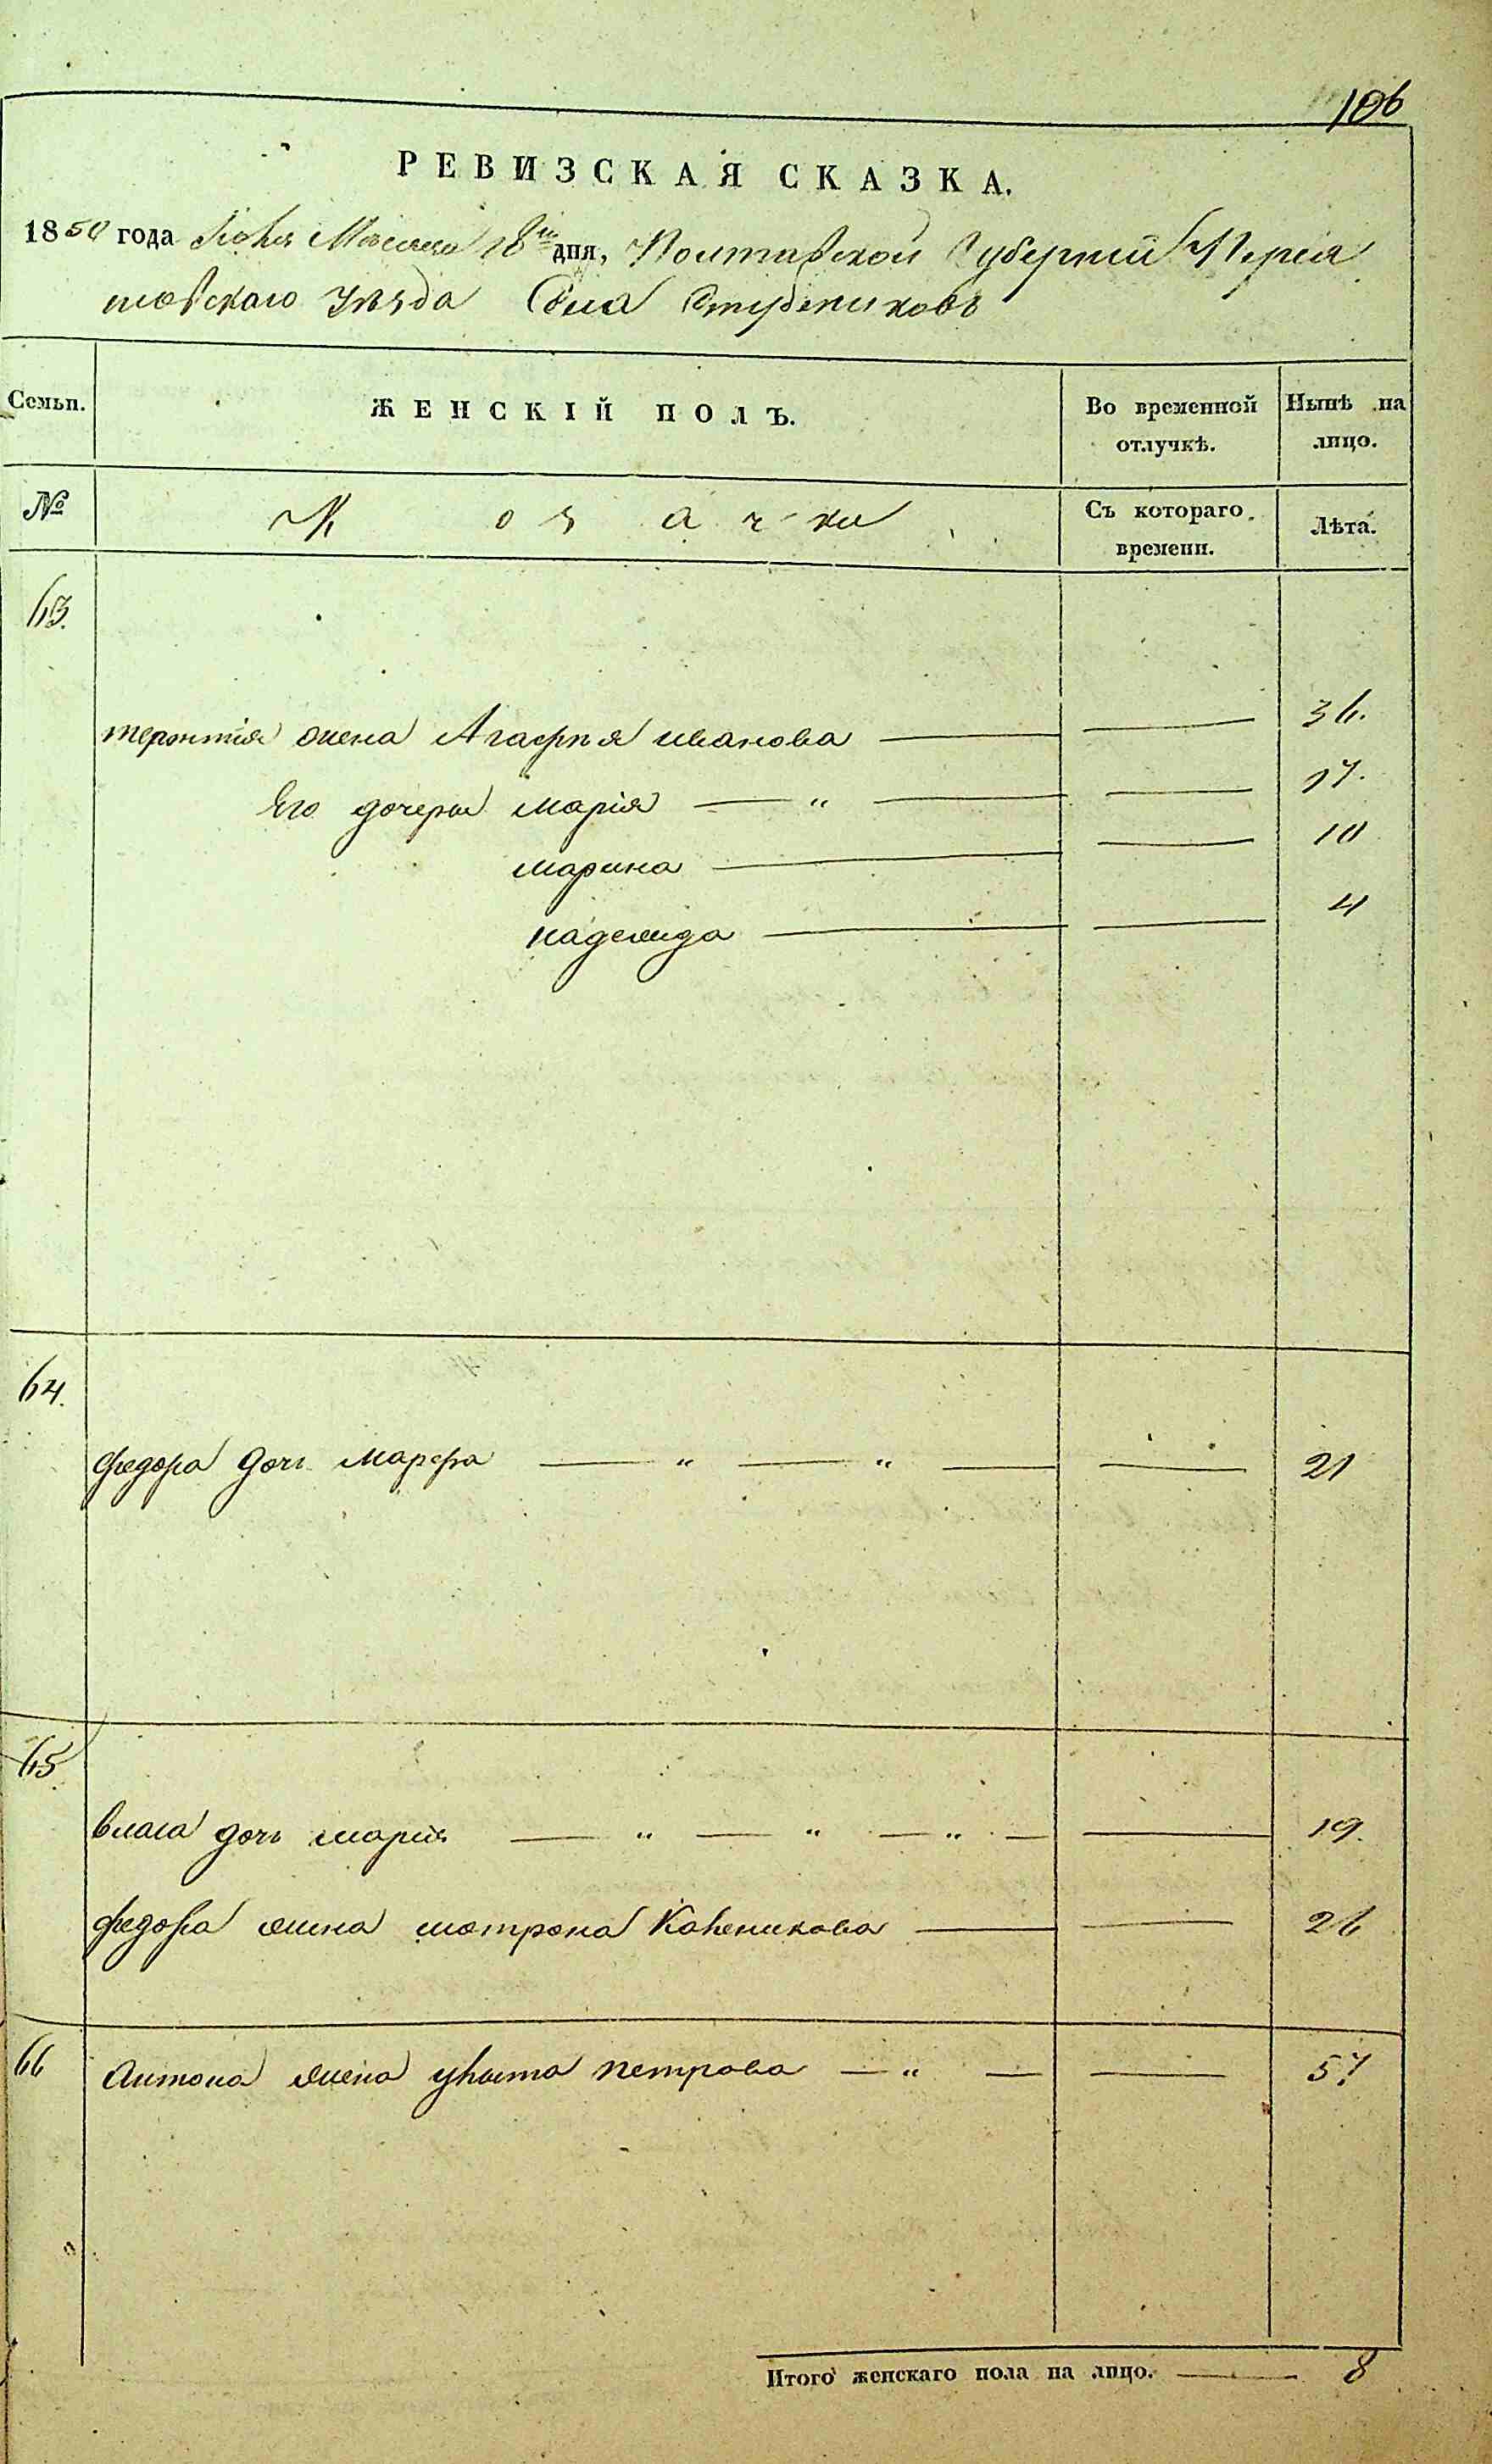 106
РЕВИЗСКАЯ СКАЗКА.
1850 года Июня Месяца 18го дня, Полтавской Губернии Перея
славскаго Уѣзда Села Студениковъ
Семьи.
ЖЕНСКІЙ ПОЛЪ.
Во временной отлучкѣ.
Нынѣ на лицо.
№
Козачки
Съ котораго времени.
Лѣта.
63.
терентия жена Агафия иванова — — 36.
Его дочери мария — " — — 17.
марина — — 10
надежда — — 4
64.
федора дочь марфа — " — " — — 21
65
власа дочь мария — " — " — " — — 19.
федора жена мотрона — — 26
66 Антона жена улита петрова — " — — 57
Итого женскаго пола на лицо. — 8